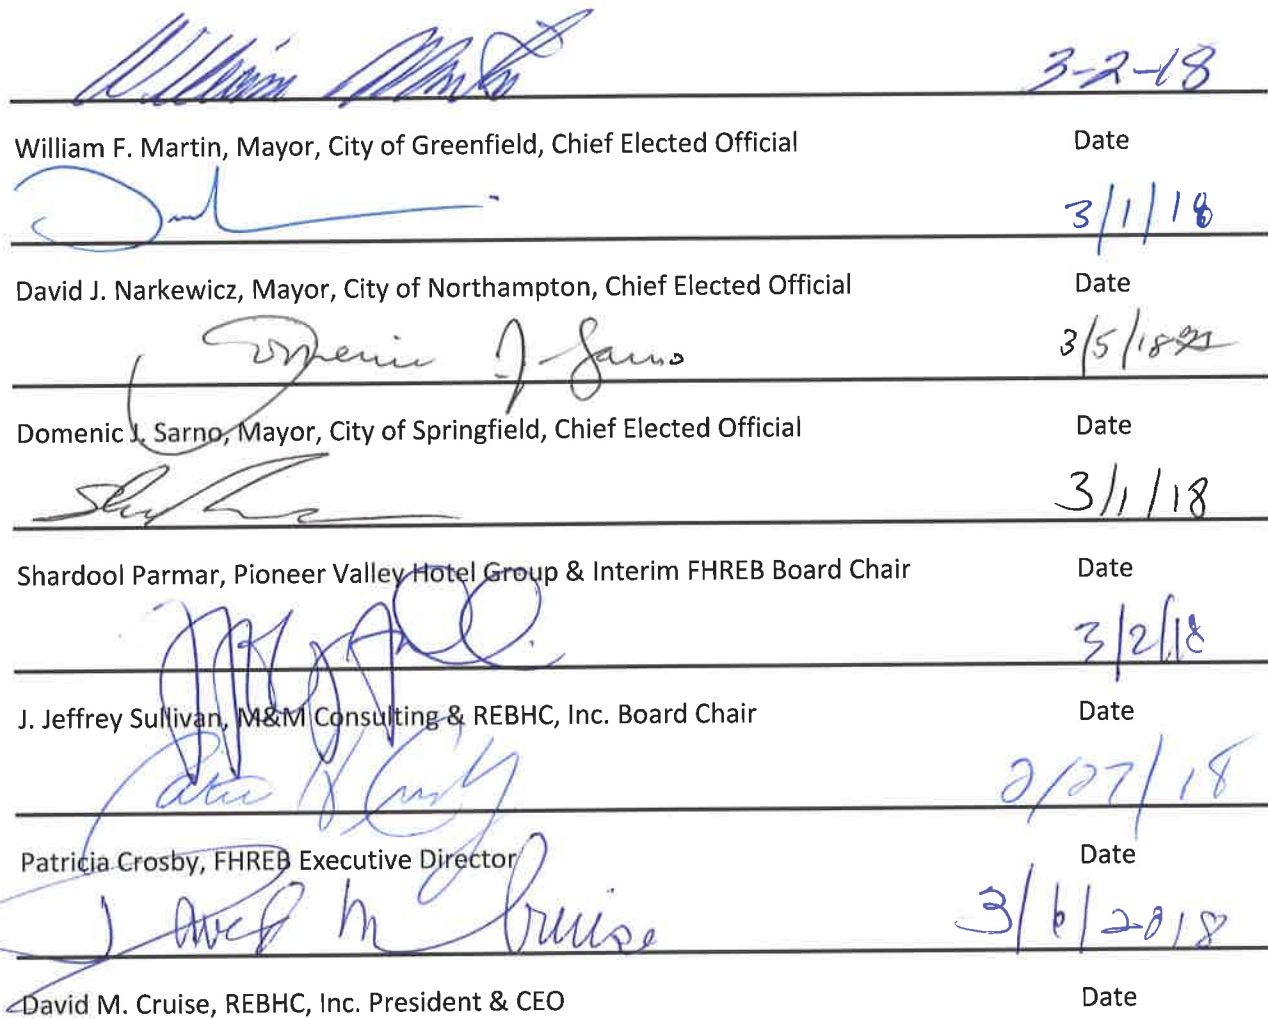 William Martin 3-2-18
William F. Martin, Mayor, City of Greenfield, Chief Elected Official Date
3/1/18
David J. Narkewicz, Mayor, City of Northampton, Chief Elected Official Date
Domenic J. Sarno 3/5/18
Domenic J. Sarno, Mayor, City of Springfield, Chief Elected Official Date
3/1/18
Shardool Parmar, Pioneer Valley Hotel Group & Interim FHREB Board Chair Date
3/2/18
J. Jeffrey Sullivan, M&M Consulting & REBHC, Inc. Board Chair Date
2/27/18
Patricia Crosby, FHREB Executive Director Date
David M Cruise 3/6/2018
David M. Cruise, REBHC, Inc. President & CEO Date